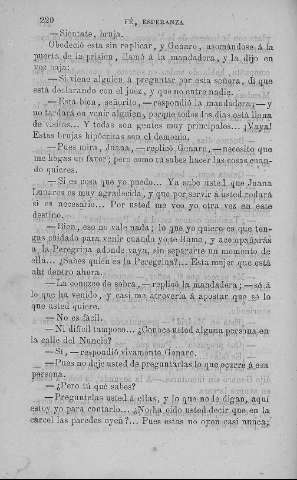 220 FÉ, ESPERANZA
—Siéntate, bruja.
Obedeció esta sin replicar, y Genaro, asomándose á la
puerta de la prision, llamó á la mandadera, y la dijo en
voz baja:
—Si viene alguien á preguntar por esta señora, di que
está declarando con el juez, y que no entre nadie.
—Está bien, señorito,—respondió la mandadera;—y
no tardará en venir alguien, porque todos los dias está llena
de visitas... Y todas son gentes muy principales... ¡Vaya!
Estas brujas hipócritas son el demonio.
—Pues mira, Juana,—replicó Genaro,—necesito que
me hagas un favor; pero como tú sabes hacer las cosas cuan-
do quieres.
—Si es cosa que yo puedo... Ya sabe usted que Juana
Linares es muy agradecida, y que por servir á usted rodará
si es necesario... Por usted me veo yo otra vez en este
destino.
—Bien, eso no vale nada; lo que yo quiero es que ten-
gas cuidado para venir cuando yo te llame, y acompañarás
á la Peregrina adonde vaya, sin separarte un momento de
ella... ¿Sabes quién es la Peregrina?... Esta mujer que está
ahí dentro ahora.
—La conozco de sobra,—replicó la mandadera;—sé á
lo que ha venido, y casi me atreveria á apostar que sé lo
que usted quiere.
—No es fácil.
—Ni difícil tampoco... ¿Conoce usted alguna persona en
la calle del Nuncio?
—Sí,—respondió vivamente Genaro.
—Pues no deje usted de preguntarlas lo que ocurre á esa
persona.
—¿Pero tú qué sabes?
—Pregúntelas usted á ellas, y lo que no le digan, aquí
estoy yo para contarlo... ¿No ha oido usted decir que en la
cárcel las paredes oyen?... Pues estas no oyen casi nunca;